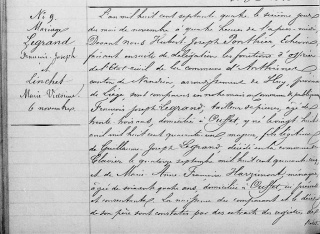 N° 9
Mariage
Legrand
François Joseph
&
Linchet
Marie Victoire
6 novembre
L'an mil huit cent septante quatre, le sixième jour
du mois de novembre à quatre heures de l'après-midi
Devant nous Hubert Joseph
faisant ensuite de délégation les fonctions d'officier
de l'état civil de la commune
canton de Nandrin arrondissement de Huy, province
de Liège sont comparus en notre maison commune et publiquement
François Joseph Legrand, tailleur de pierres, âgé de
trente trois ans, domicilié à Ouffet, y né le vingt huit
mil huit cent quarante un majeur, fils légitime
de Guillaume Joseph Legrand, décédé en la commune
Clavier le quinze septembre mil huit cent
et de Marie Anne Françoise ménagère
âgée de soixante quatre ans, domiciliée à Ouffet, ici présente
et consentante. La naissance du comparant et le décès
de son père sont constatés par des extraits des registres